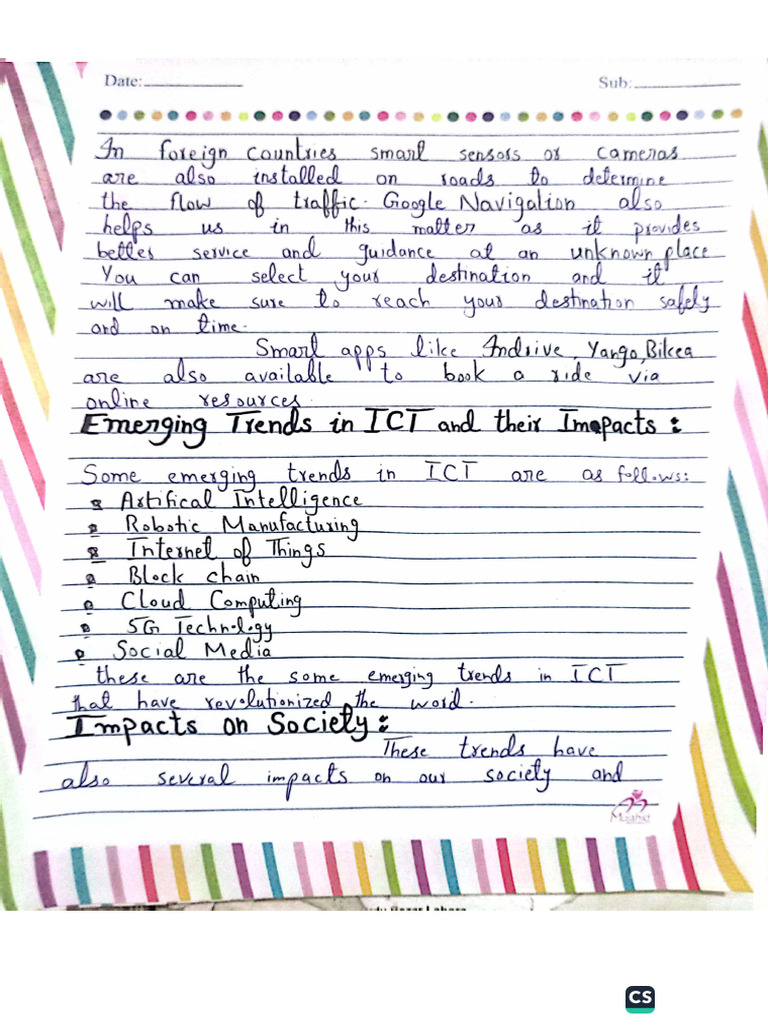 Date:
Sub:
In foreign countries smart sensors or cameras
are also installed on roads to determine
the flow of traffic. Google Navigation also
helps us in this matter as it provides
better service and guidance at an unknown place
You can select your destination and it
will make sure to reach your destination safely
and on time.
Smart apps like Indrive, Yango, Bikea
are also available to book a ride via
online resources.
Emerging Trends in ICT and their Imapacts :
Some emerging trends in ICT are as follows:
Artifical Intelligence
Robotic Manufacturing
Internet of Things
Block chain
Cloud Computing
5G Technology
Social Media
these are the some emerging trends in ICT
that have revolutionized the word.
Impacts on Society:
These trends have
also several impacts on our society and
CS